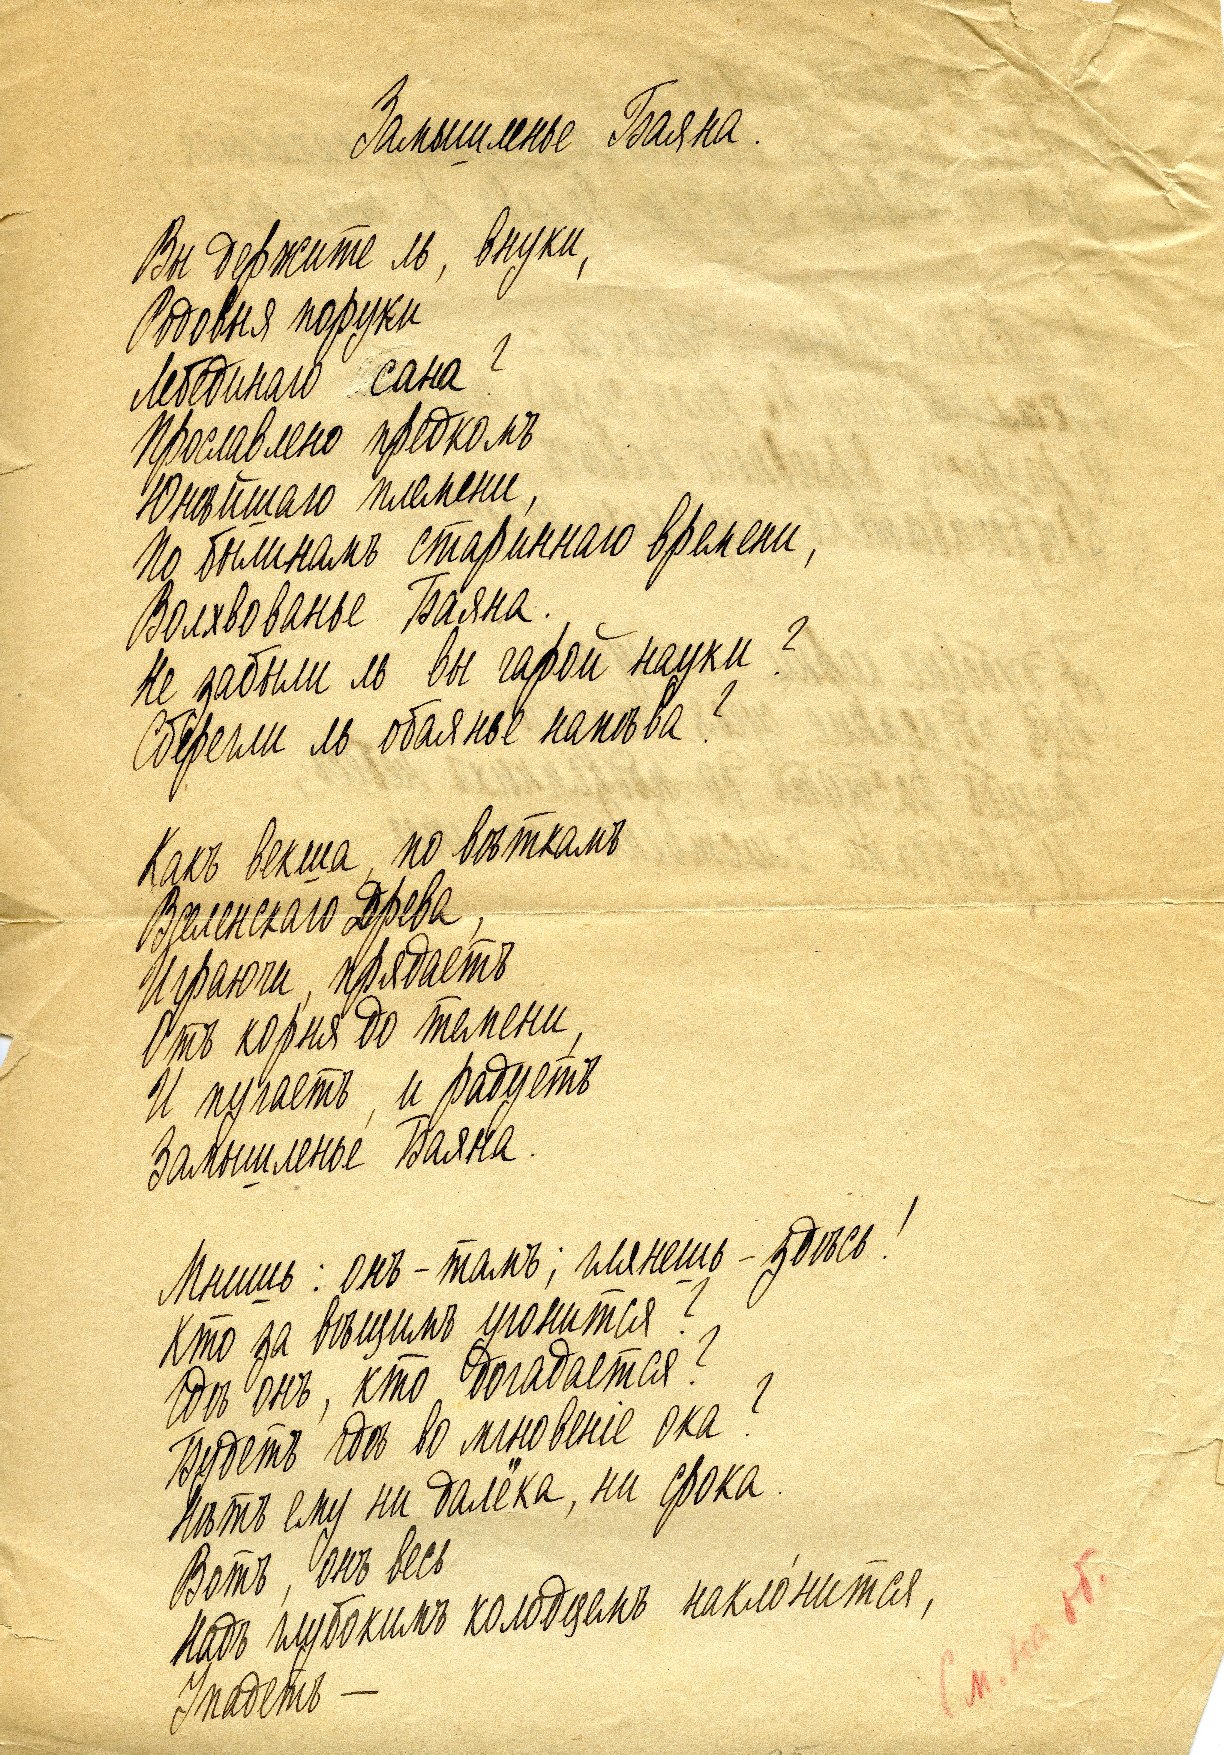 Замышленье Баяна.
Вы держите ль, внуки,
Родовыя поруки
Лебединаго сана?
Прославлено предкомъ
Юнѣйшаго племени,
По былинамъ стариннаго времени,
Волхвованье Баяна.
Не забыли ль вы гарой науки?
Сберегли ль обаянье напѣва?
Какъ векша, по вѣткамъ
Вселенскаго Древа,
Играючи, прядаетъ
Отъ корня до темени,
И пугаетъ, и радуетъ
Замышленье Баяна.
Мнишь: онъ – тамъ; глянешь – здѣсь!
Кто за вѣщимъ угонится?
Гдѣ онъ, кто догадается?
Будетъ гдѣ во мгновеніе ока?
Нѣтъ ему ни далёка, ни срока.
Вотъ, онъ весь
Надъ глубокимъ колодцемъ накло́нится,
Упадетъ —
См. на об.